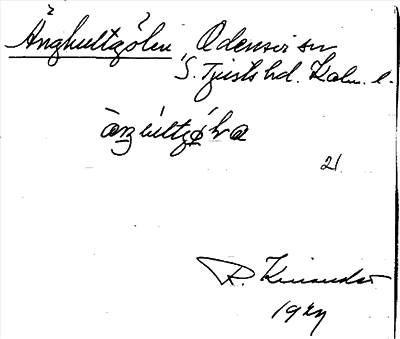 Änghultgölen Odensvi sn
S. Tjusts hd. Kalm. l.
äŋhultgø̀lɑ
21
R. Kinander